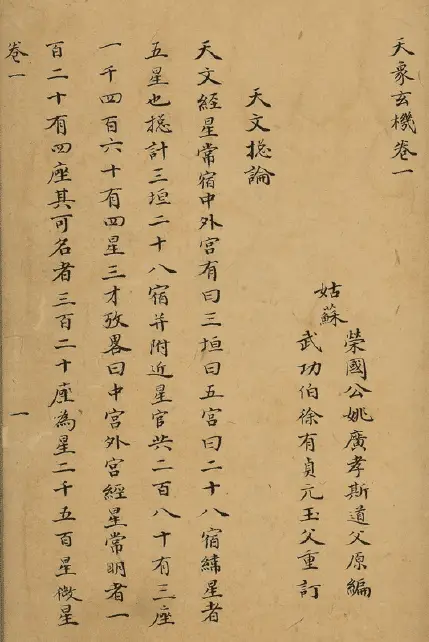 天象玄機卷一
榮國公姚廣孝斯道父原編
姑蘇
武功伯徐有貞元玉父重訂
天文捴論
天文經星常宿中外宮有曰三垣曰五宮曰二十八宿緯星者
五星也捴計三垣二十八宿并附近星官共二百八十有三座
一千四百六十有四星三才攷畧曰中宮外宮經星常明者一
百二十有四座其可名者三百二十座為星二千五百星微星
卷一
一